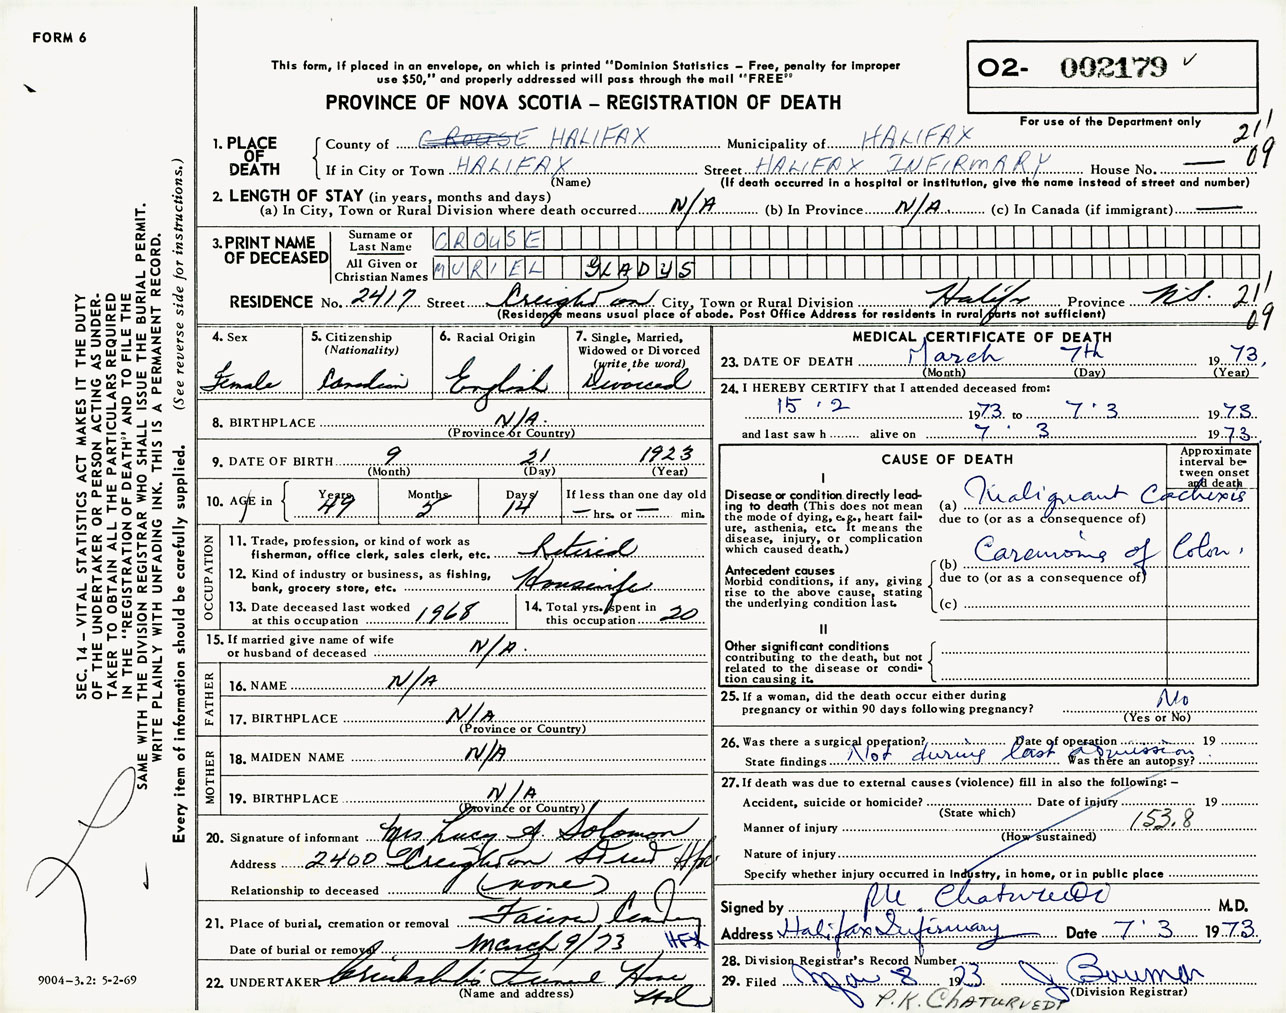 FORM 6
This form, if placed in an envelope, on which is printed "Dominion Statistics – Free, penalty for improper
use $50," and properly addressed will pass through the mail "FREE"
PROVINCE OF NOVA SCOTIA – REGISTRATION OF DEATH
O2- 002179
For use of the Department only
211
09
1. PLACE OF DEATH
County of CROUSE HALIFAX Municipality of HALIFAX
If in City or Town HALIFAX Street HALIFAX INFIRMARY House No. —
(Name) (If death occurred in a hospital or institution, give the name instead of street and number)
2. LENGTH OF STAY (in years, months and days)
(a) In City, Town or Rural Division where death occurred N/A (b) In Province N/A (c) In Canada (if immigrant) —
3. PRINT NAME OF DECEASED
Surname or Last Name CROUSE
All Given or Christian Names MURIEL GLADYS
RESIDENCE No. 2417 Street Creighton City, Town or Rural Division Halifx Province N.S. 211
(Residence means usual place of abode. Post Office Address for residents in rural parts not sufficient) 09
4. Sex
Female
5. Citizenship
(Nationality)
Canadian
6. Racial Origin
English
7. Single, Married,
Widowed or Divorced
(write the word)
Divorced
8. BIRTHPLACE N/A.
(Province or Country)
9. DATE OF BIRTH 9 21 1923
(Month) (Day) (Year)
10. AGE in
Years 49 Months 5 Days 14
If less than one day old
— hrs. or — min.
OCCUPATION
11. Trade, profession, or kind of work as
fisherman, office clerk, sales clerk, etc. Retired
12. Kind of industry or business, as fishing,
bank, grocery store, etc. Housewife
13. Date deceased last worked
at this occupation 1968
14. Total yrs. spent in
this occupation 20
15. If married give name of wife
or husband of deceased N/A.
FATHER
16. NAME N/A
17. BIRTHPLACE N/A
(Province or Country)
MOTHER
18. MAIDEN NAME N/A
19. BIRTHPLACE N/A
(Province or Country)
20. Signature of informant Mrs. Lucy A. Solomon
Address 2400 Creighton Street Hfx
Relationship to deceased (none)
21. Place of burial, cremation or removal
Date of burial or removal March 9/73 HFX
22. UNDERTAKER Funeral Home
(Name and address) Ltd
MEDICAL CERTIFICATE OF DEATH
23. DATE OF DEATH March 7th 19 73.
(Month) (Day) (Year)
24. I HEREBY CERTIFY that I attended deceased from:
15 · 2 1973 to 7 · 3 1973
and last saw h alive on 7 · 3 1973
CAUSE OF DEATH
Approximate
interval be-
tween onset
and death
I
Disease or condition directly lead-
ing to death (This does not mean
the mode of dying, e.g., heart fail-
ure, asthenia, etc. It means the
disease, injury, or complication
which caused death.)
(a) Malignant Cachexis
due to (or as a consequence of)
Antecedent causes
Morbid conditions, if any, giving
rise to the above cause, stating
the underlying condition last.
(b) Carcinoma of Colon.
due to (or as a consequence of)
(c)
II
Other significant conditions
contributing to the death, but not
related to the disease or condi-
tion causing it.
25. If a woman, did the death occur either during
pregnancy or within 90 days following pregnancy? No
(Yes or No)
26. Was there a surgical operation? Date of operation 19
State findings Not during last admission Was there an autopsy?
27. If death was due to external causes (violence) fill in also the following: –
Accident, suicide or homicide? Date of injury 19
(State which)
Manner of injury 153.8
(How sustained)
Nature of injury
Specify whether injury occurred in industry, in home, or in public place
Signed by P.K. Chaturvedi M.D.
Address Halifax Infirmary Date 7 · 3 1973
28. Division Registrar's Record Number
29. Filed Mar 8 1973 J Bowmer
(Division Registrar)
P.K. CHATURVEDI
SEC. 14 – VITAL STATISTICS ACT MAKES IT THE DUTY
OF THE UNDERTAKER OR PERSON ACTING AS UNDER-
TAKER TO OBTAIN ALL THE PARTICULARS REQUIRED
IN THE "REGISTRATION OF DEATH" AND TO FILE THE
SAME WITH THE DIVISION REGISTRAR WHO SHALL ISSUE THE BURIAL PERMIT.
WRITE PLAINLY WITH UNFADING INK. THIS IS A PERMANENT RECORD.
Every item of information should be carefully supplied. (See reverse side for instructions.)
9004–3.2: 5-2-69